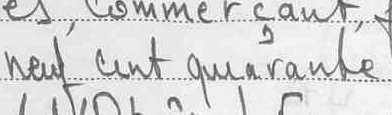 es, commerçant,
neuf cent quarante